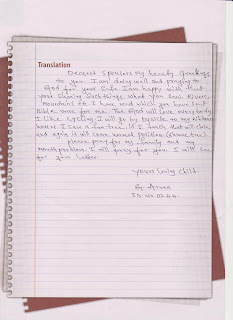 Translation
Dearest Sponsers my hearty Greetings
to you. I am doing well and praying to
God for your Safe. I am happy with that
your sharing with things. What you love Rivers,
Mountains etc. I have read which you have sent
Bible verse for me. The God will love everybody.
I like cycling. I will go by bycicle to my
house. I saw a tree. If I touch that will close
and again it will come normal position
please pray for my family and my
mouth problem. I will pray for you. I will see
for your Letter.
Yours Loving Child.
By. Aruna
ID. No.